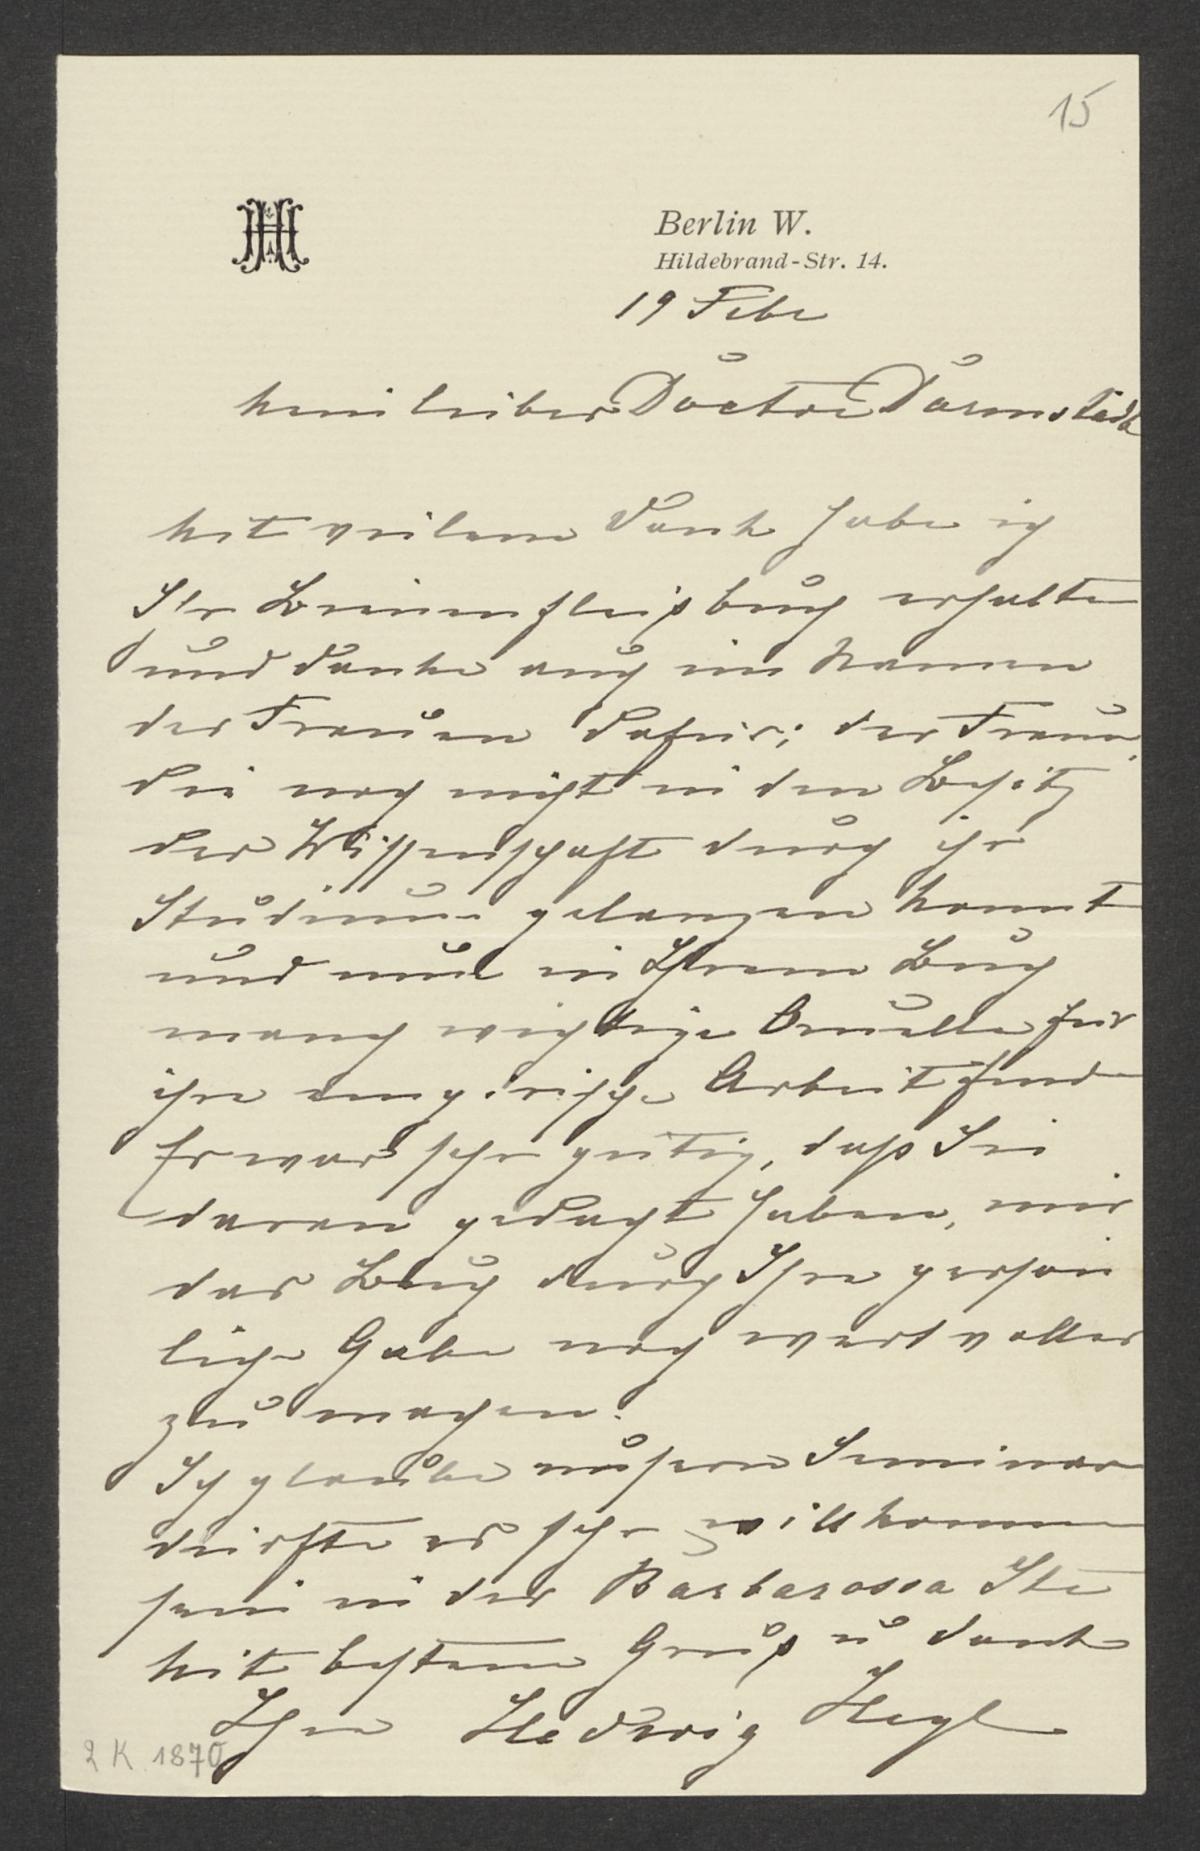 15
HH
Berlin W.
Hildebrand-Str. 14.
19 Febr
Mein lieber Doctor Darmstädt
Mit vielem Dank habe ich
Ihr Bienenfleißbuch erhalten
und danke auch im Namen
der Frauen dafür; der Frauen,
die noch nicht in den Besitz
der Wissenschaft durch ihr
Studium gelangen konnt
und nun in Ihrem Buch
manch wichtige Quelle für
ihre empirische Arbeit find
Es war sehr gütig, daß Sie
daran gedacht haben, mir
das Buch durch Ihre persön
liche Gabe noch wertvoller
zu machen.
Ich glaube unserm Seminar
dürfte es sehr willkommen
sein in der Barbarossa Str
Mit bestem Gruß u Dank
Ihre Hedwig Heyl
2 K 1870